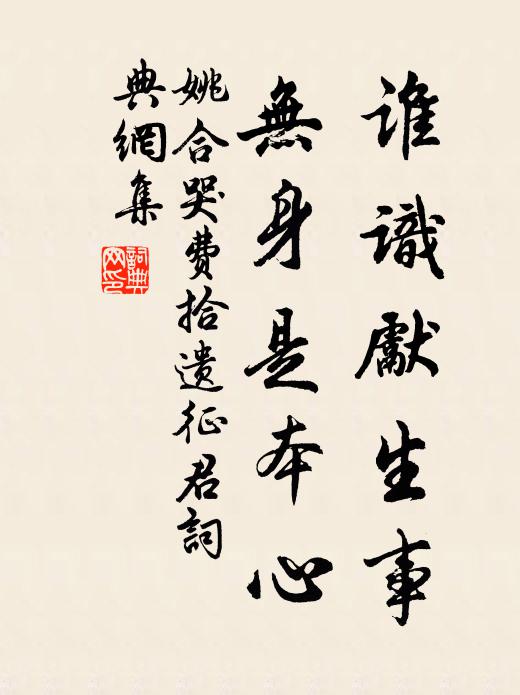 誰識厭生事
無身是本心
姚合哭費拾遺征君詞
典網集
詞典網印